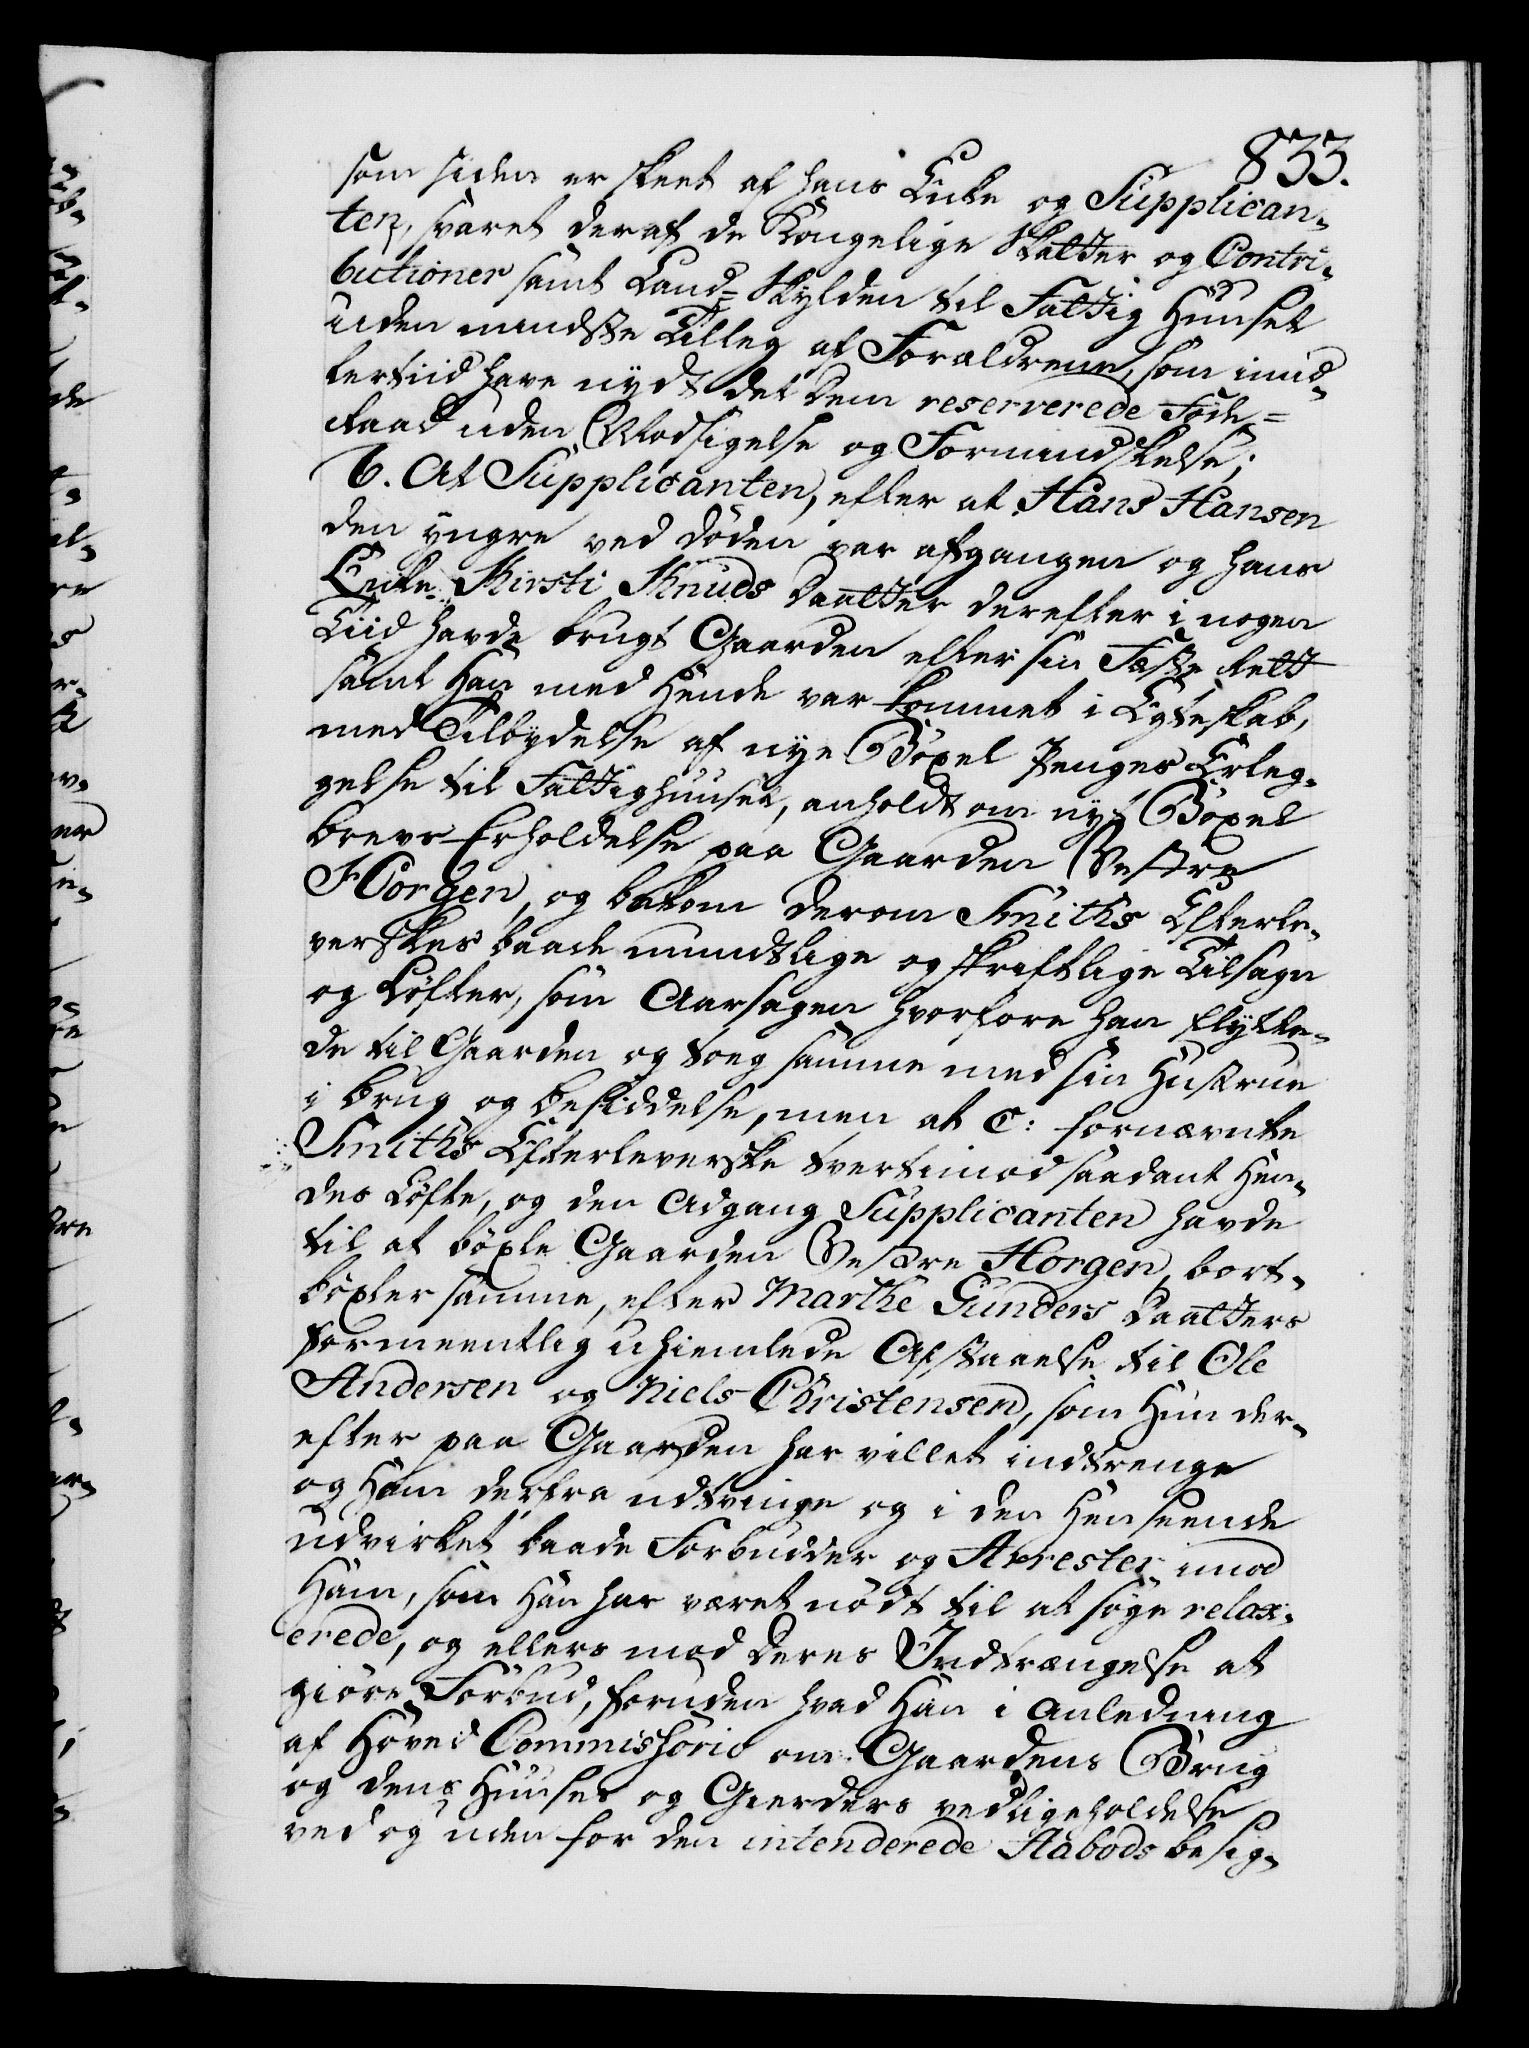 833.
som siden er skeet af hans Enke og Supplican-
ten, svaret deraf de Kongelige Skatter og Contri-
butioner samt Land-Skylden til Fattig Huuset
uden mindste Tilleg af Forældrene, som imid-
lertiid have nydt det dem reserverede Föde-
Raad uden Modsigelse og Formindskelse;
6. At Supplicanten, efter at Hans Hansen
den yngre ved döden var afgangen og hans
Enke Kirsti Knuds Daatter derefter i nogen
Tiid havde brugt Gaarden efter sin Fæste Rett
samt Han med Hende var kommet i Egteskab,
med Tilbydelse af nye Böxel Penges Erleg-
gelse til Fattighuuset, anholdt om nyt Böxel
brevs Erholdelse paa Gaarden Vestre
Horgen, og bekom derom Smiths Efterle-
verskes baade mundtlige og skriftlige Tilsagn
og Löfter, som Aarsagen hvorfore han flytte-
de til Gaarden og toeg samme med sin Hustrue
i brug og besiddelse, men at C: fornævnte
Smiths Efterleverske tvertimod saadant Hen-
des Löfte, og den Adgang Supplicanten havde
til at böxle Gaarden Vestre Horgen, bort-
böxler samme, efter Marthe Gunders Daatters
formeentlig uhiemlede Afstaaelse til Ole
Andersen og Niels Christensen, som Hun der-
efter paa Gaarden har villet indtrenge
og Ham derfra udtvinge og i den Henseende
udvirket baade Forbudder og Arrester imod
Ham, som Han har været nödt til at söge relax-
erede, og ellers mod deres Indtrængelse at
giöre Forbud, foruden hvad Han i Anledning
af Hoved Commissorio om Gaardens Brug
og dens Huuses og Gierders vedligeholdelse
ved og uden for den intenderede Aabods besig-